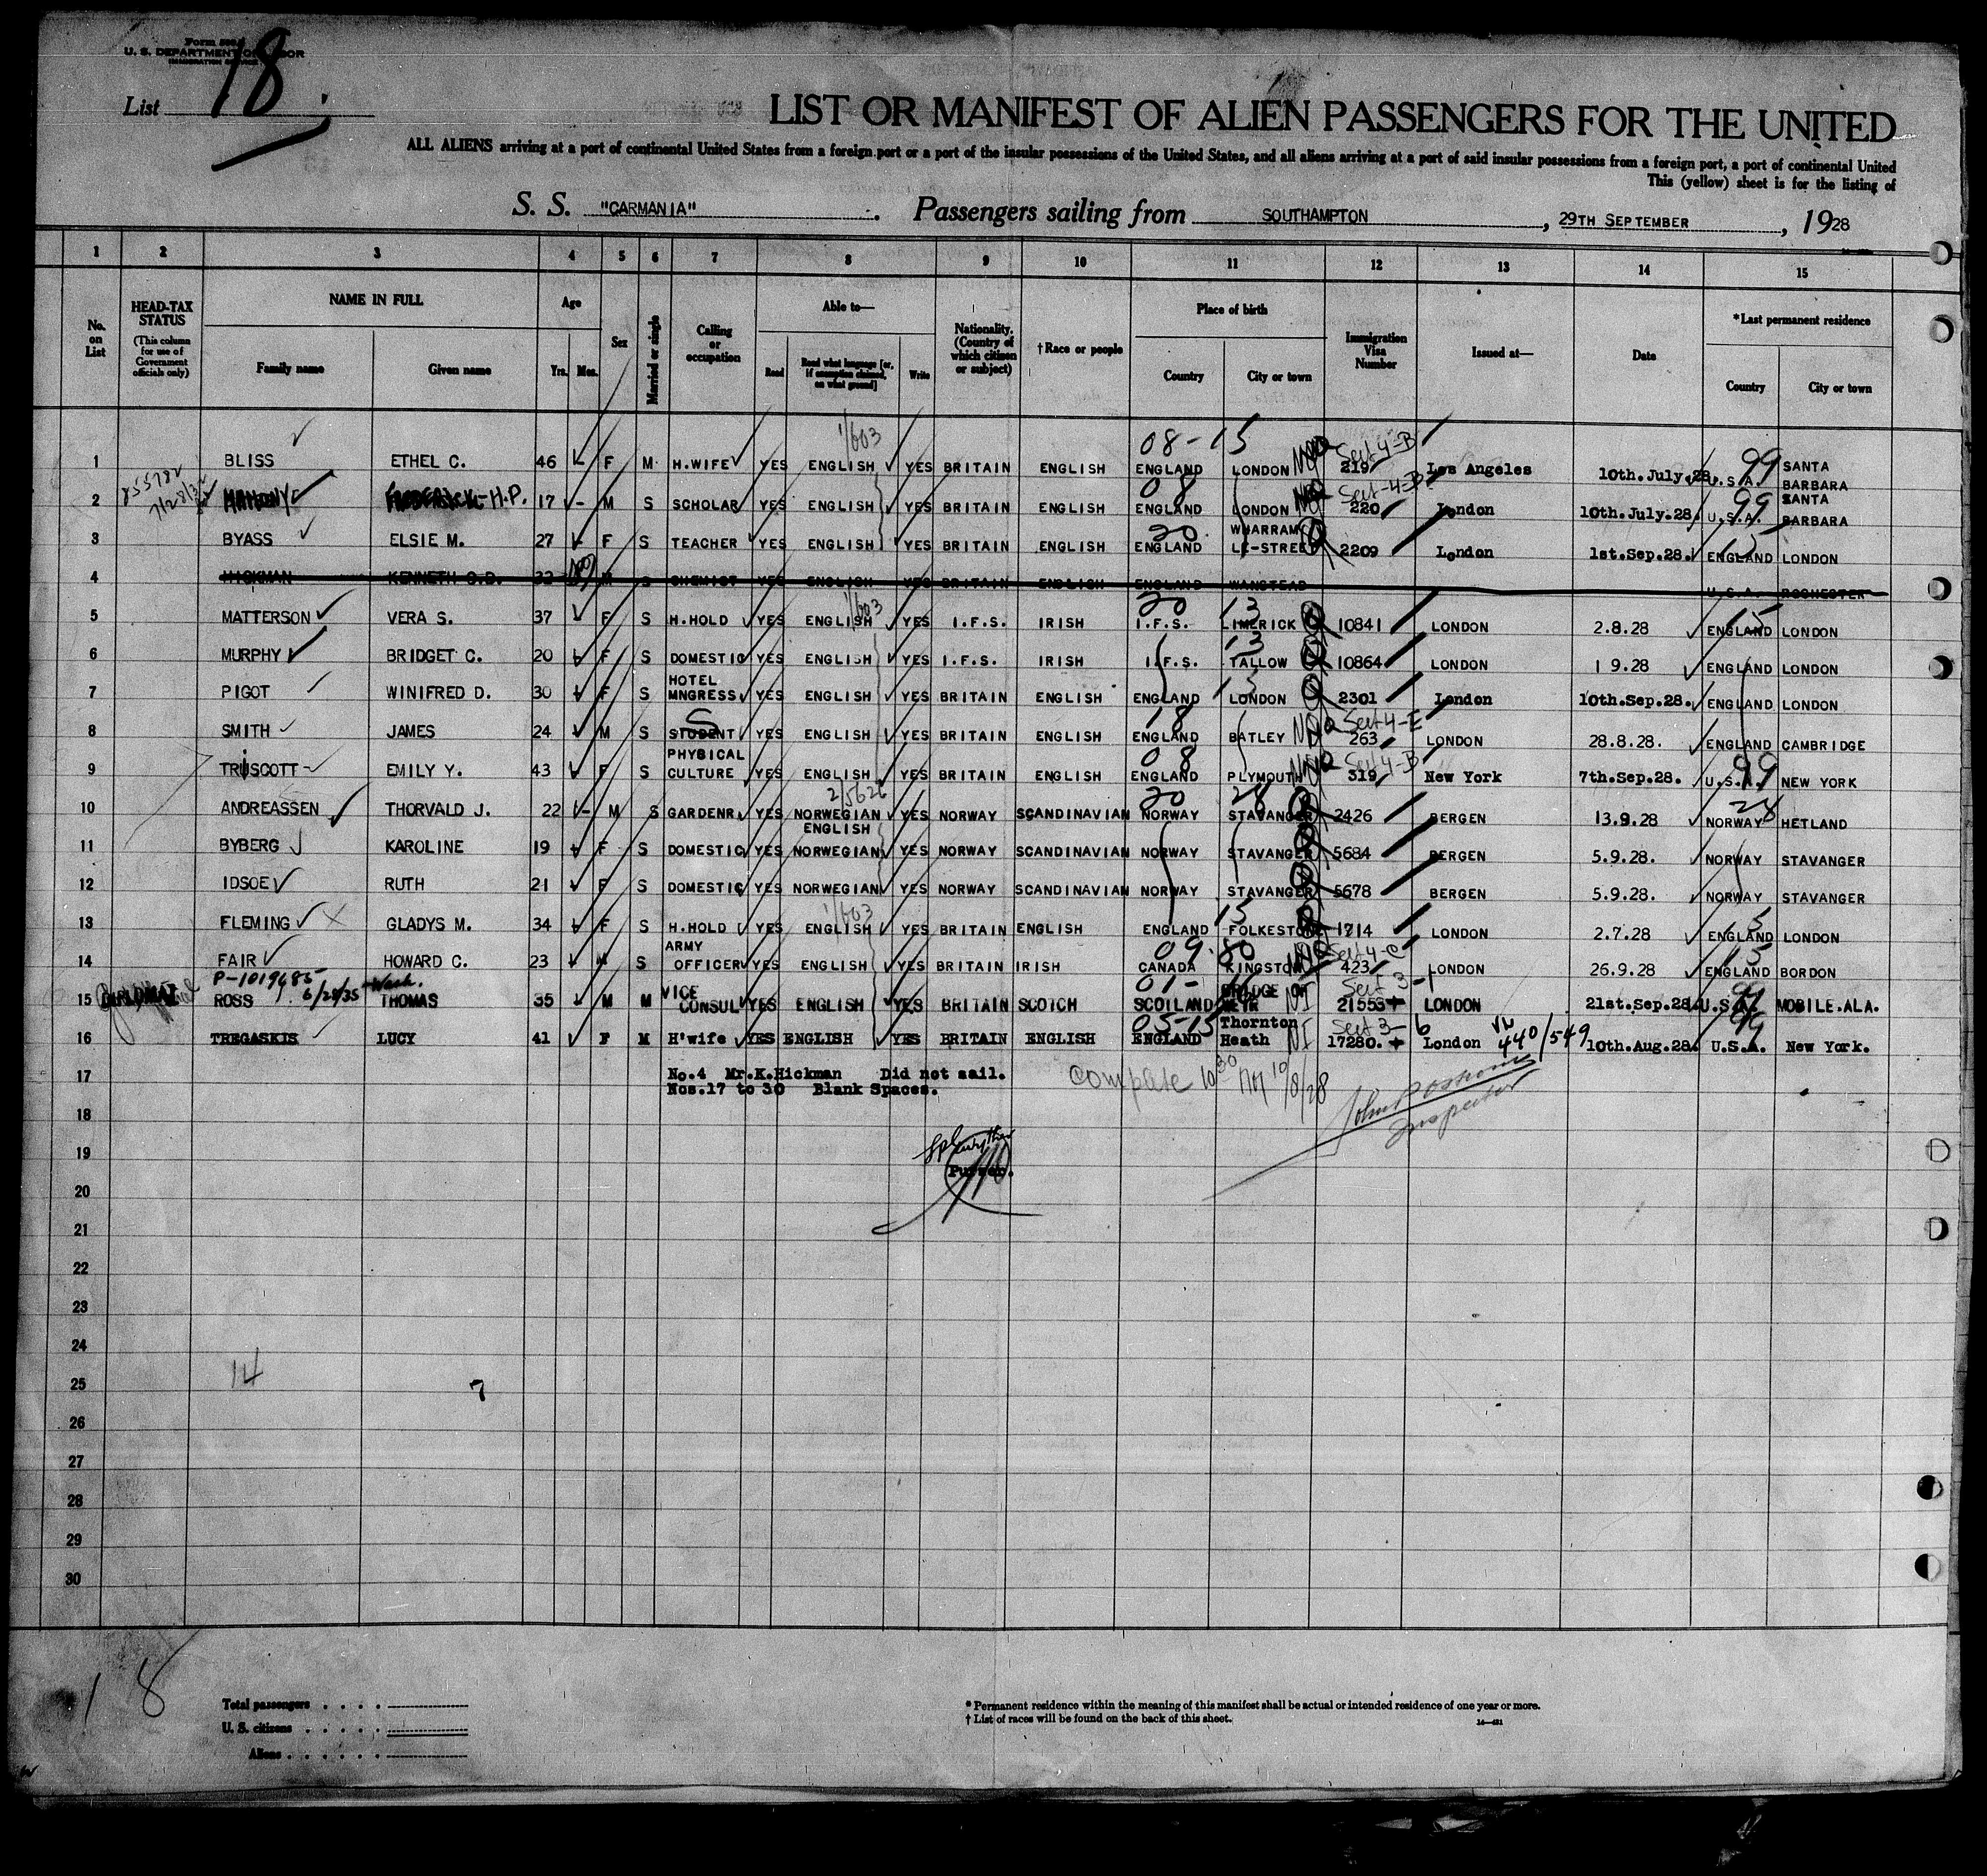 Form
U. S. DEPARTMENT OF LABOR
IMMIGRATION SERVICE
List 18
LIST OR MANIFEST OF ALIEN PASSENGERS FOR THE UNITED
ALL ALIENS arriving at a port of continental United States from a foreign port or a port of the insular possessions of the United States, and all aliens arriving at a port of said insular possessions from a foreign port, a port of continental United
This (yellow) sheet is for the listing of
S. S. "CARMANIA" Passengers sailing from SOUTHAMPTON, 29TH SEPTEMBER, 1928
1 2 3 4 5 6 7 8 9 10 11 12 13 14 15
No. on List HEAD-TAX STATUS (This column for use of Government officials only) NAME IN FULL Family name Given name Age Yrs. Mos. Sex Married or single Calling or occupation Able to— Read Read what language [or, if exemption claimed, on what ground] Write Nationality. (Country of which citizen or subject) †Race or people Place of birth Country City or town Immigration Visa Number Issued at— Date *Last permanent residence Country City or town
1/603 08-15 Sect 4-B
1 BLISS ETHEL C. 46 F M H.WIFE YES ENGLISH YES BRITAIN ENGLISH ENGLAND LONDON 219 Los Angeles 10th.July.28. U.S.A. 99 SANTA BARBARA
08 Sect-4-B
2 H.P. 17 - M S SCHOLAR YES ENGLISH YES BRITAIN ENGLISH ENGLAND LONDON 220 London 10th.July.28. U.S.A. 99 SANTA BARBARA
20
3 BYASS ELSIE M. 27 F S TEACHER YES ENGLISH YES BRITAIN ENGLISH ENGLAND WHARRAM LE-STREET 2209 London 1st.Sep.28. ENGLAND LONDON
4 HICKMAN KENNETH C.D. 32 M S CHEMIST YES ENGLISH YES BRITAIN ENGLISH ENGLAND WANSTEAD U.S.A. ROCHESTER
1/603 20 13 15
5 MATTERSON VERA S. 37 F S H.HOLD YES ENGLISH YES I.F.S. IRISH I.F.S. LIMERICK 10841 LONDON 2.8.28 ENGLAND LONDON
13
6 MURPHY BRIDGET C. 20 F S DOMESTIC YES ENGLISH YES I.F.S. IRISH I.F.S. TALLOW 10864 LONDON 1 9.28 ENGLAND LONDON
7 PIGOT WINIFRED D. 30 F S HOTEL MNGRESS YES ENGLISH YES BRITAIN ENGLISH ENGLAND LONDON 2301 London 10th.Sep.28. ENGLAND LONDON
18 Sect 4-E
8 SMITH JAMES 24 M S STUDENT YES ENGLISH YES BRITAIN ENGLISH ENGLAND BATLEY 263 LONDON 28.8.28. ENGLAND CAMBRIDGE
08 Sect 4-B
9 TRUSCOTT EMILY Y. 43 F S PHYSICAL CULTURE YES ENGLISH YES BRITAIN ENGLISH ENGLAND PLYMOUTH 319 New York 7th.Sep.28. U.S.A. 99 NEW YORK
2/5626 20 28 28
10 ANDREASSEN THORVALD J. 22 - M S GARDENR. YES NORWEGIAN ENGLISH YES NORWAY SCANDINAVIAN NORWAY STAVANGER 2426 BERGEN 13.9.28 NORWAY HETLAND
11 BYBERG KAROLINE 19 F S DOMESTIC YES NORWEGIAN YES NORWAY SCANDINAVIAN NORWAY STAVANGER 5684 BERGEN 5.9.28. NORWAY STAVANGER
12 IDSOE RUTH 21 F S DOMESTIC YES NORWEGIAN YES NORWAY SCANDINAVIAN NORWAY STAVANGER 5678 BERGEN 5.9.28. NORWAY STAVANGER
1/603 15 15
13 FLEMING GLADYS M. 34 F S H.HOLD YES ENGLISH YES BRITAIN ENGLISH ENGLAND FOLKESTONE 1714 LONDON 2.7.28 ENGLAND LONDON
09-80 Sect 4-C 15
14 FAIR HOWARD C. 23 M S ARMY OFFICER YES ENGLISH YES BRITAIN IRISH CANADA KINGSTON 423 LONDON 26.9.28 ENGLAND BORDON
P-1019685 6/28/35 Wash. 01- Sect 3-1
15 DIPLOMAT ROSS THOMAS 35 M M VICE CONSUL YES ENGLISH YES BRITAIN SCOTCH SCOTLAND BRIDGE OF WEIR 21553 LONDON 21st.Sep.28. U.S.A. MOBILE.ALA.
05-15 Sect 3-6 440/549
16 TREGASKIS LUCY 41 F M H'wife YES ENGLISH YES BRITAIN ENGLISH ENGLAND Thornton Heath NI 17280. London 10th.Aug.28. U.S.A. 99 New York.
17 No.4 Mr.K.Hickman Did not sail.
Nos.17 to 30 Blank Spaces.
Complete 10 30 AM 10/8/28
Inspector
18
19
Purser.
20
21
22
23
24
14
25 7
26
27
28
29
30
18
Total passengers
U. S. citizens
Aliens
* Permanent residence within the meaning of this manifest shall be actual or intended residence of one year or more.
† List of races will be found on the back of this sheet.
14—431